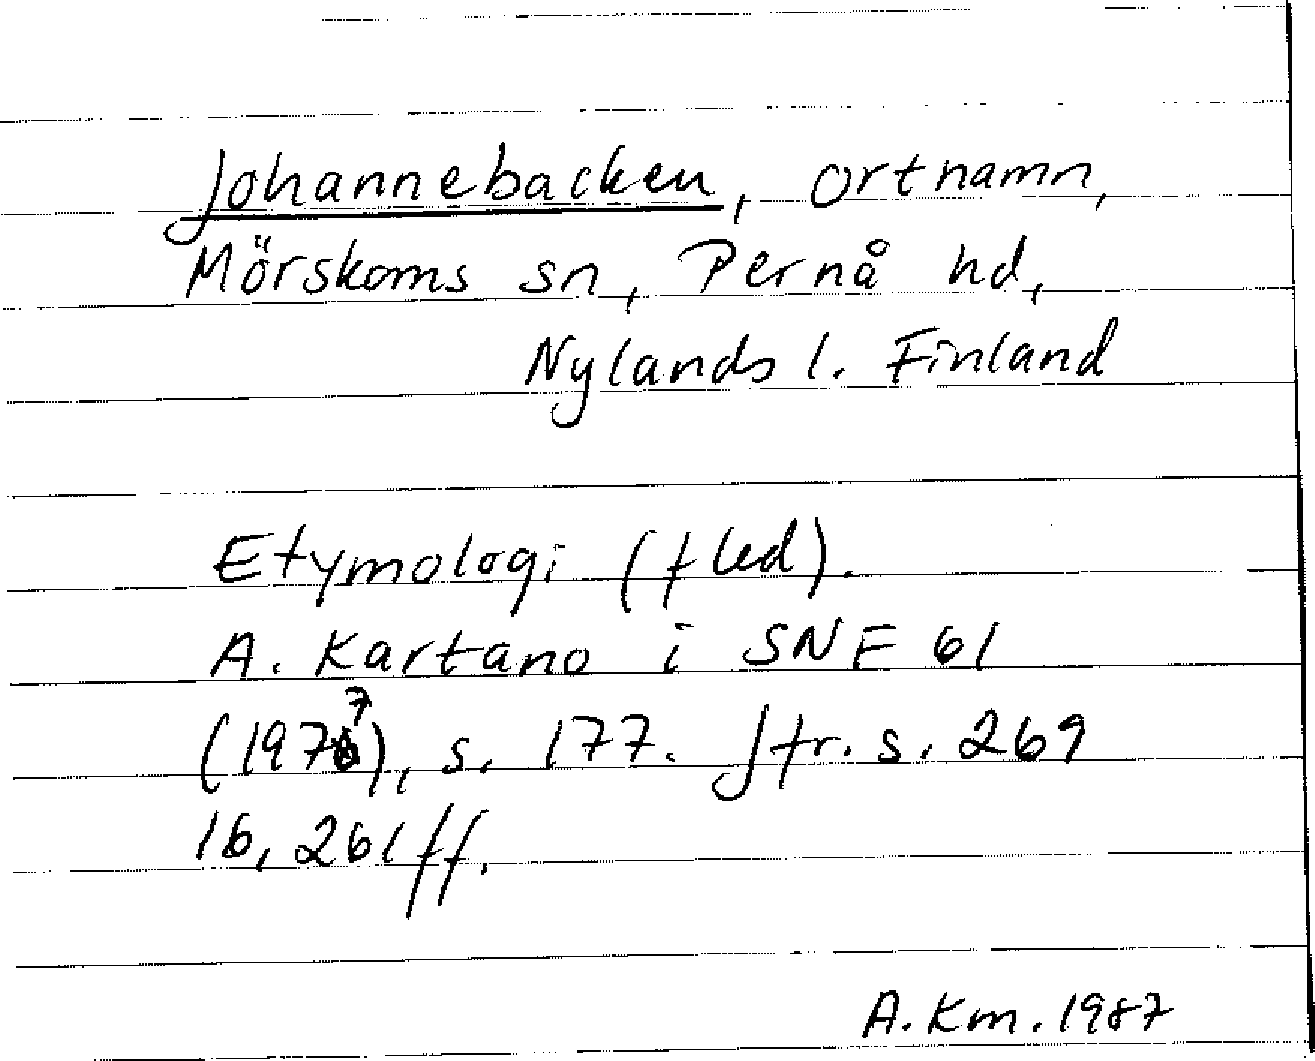 Johannebacken, ortnamn,
Mörskoms sn, Pernå hd,
Nylands l. Finland
Etymologi (f led).
A. Kartano i SNF 61
(1977), s. 177. Jfr. s. 269
16, 261 ff.
A. Km. 1987